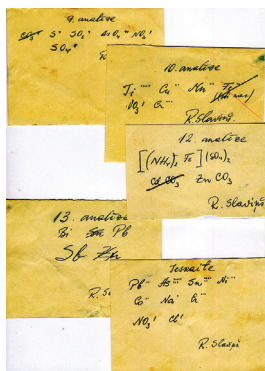 9. analīze
CO₃" S" SO₃" AsO₄''' NO₃'
SO₄"
R
10. analīze
Ti'''' Cu'' Mn'' Fe'''
NO₃' Cl'
R. Slaviņš
12. analīze
[(NH₄)₂ Fe](SO₄)₂
Cd CO₃ Zn CO₃
R. Slaviņš
13. analīze
Bi Sn Pb
Sb Zn
R. S
Ieskaite
Pb'' As''' Sn'' Ni''
Co'' Na'
NO₃' Cl'
R. Slaviņš